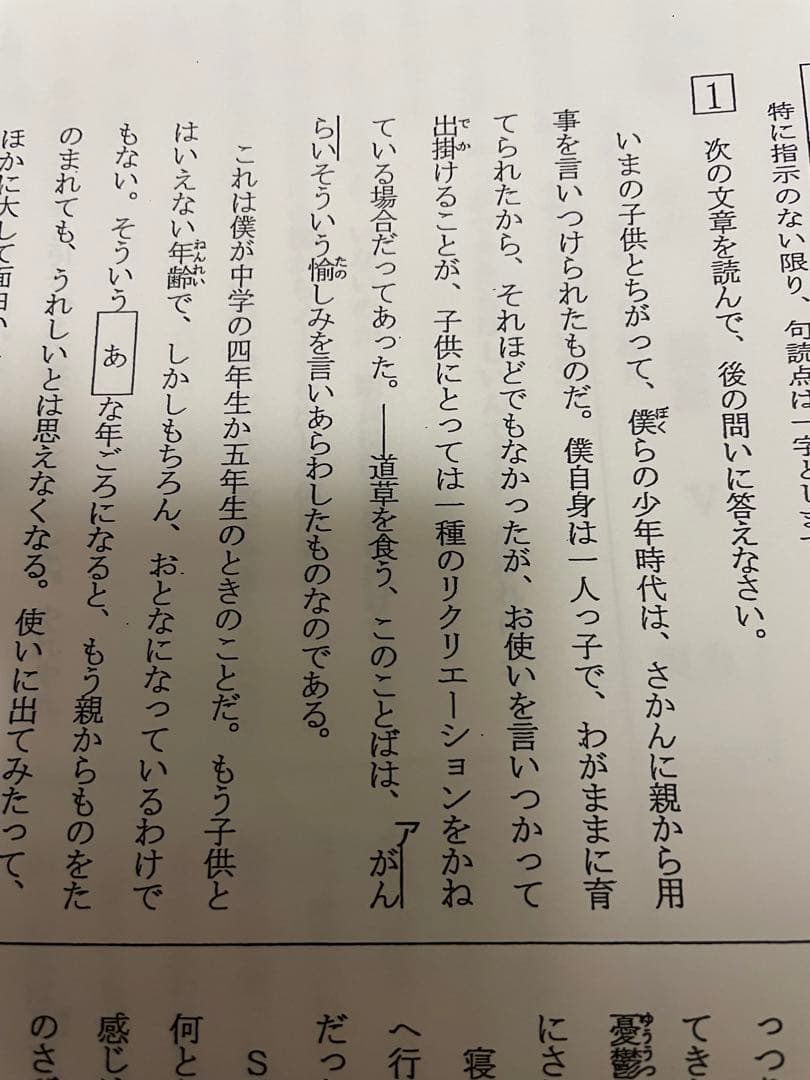 特に指示のない限り、句読点は一字とします
1 次の文章を読んで、後の問いに答えなさい。
いまの子供とちがって、僕らの少年時代は、さかんに親から用
ぼく
事を言いつけられたものだ。僕自身は一人っ子で、わがままに育
てられたから、それほどでもなかったが、お使いを言いつかって
出掛けることが、子供にとっては一種のリクリエーションをかね
でか
ている場合だってあった。──道草を食う、このことばは、アがん
らいそういう愉しみを言いあらわしたものなのである。
たの
これは僕が中学の四年生か五年生のときのことだ。もう子供と
はいえない年齢で、しかしもちろん、おとなになっているわけで
ねんれい
もない。そういうあな年ごろになると、もう親からものをた
のまれても、うれしいとは思えなくなる。使いに出てみたって、
ほかに大して面白い
っつ
てき
憂鬱
ゆううつ
にさ
寝
へ行
だっ
S
何と
感じ
のさ